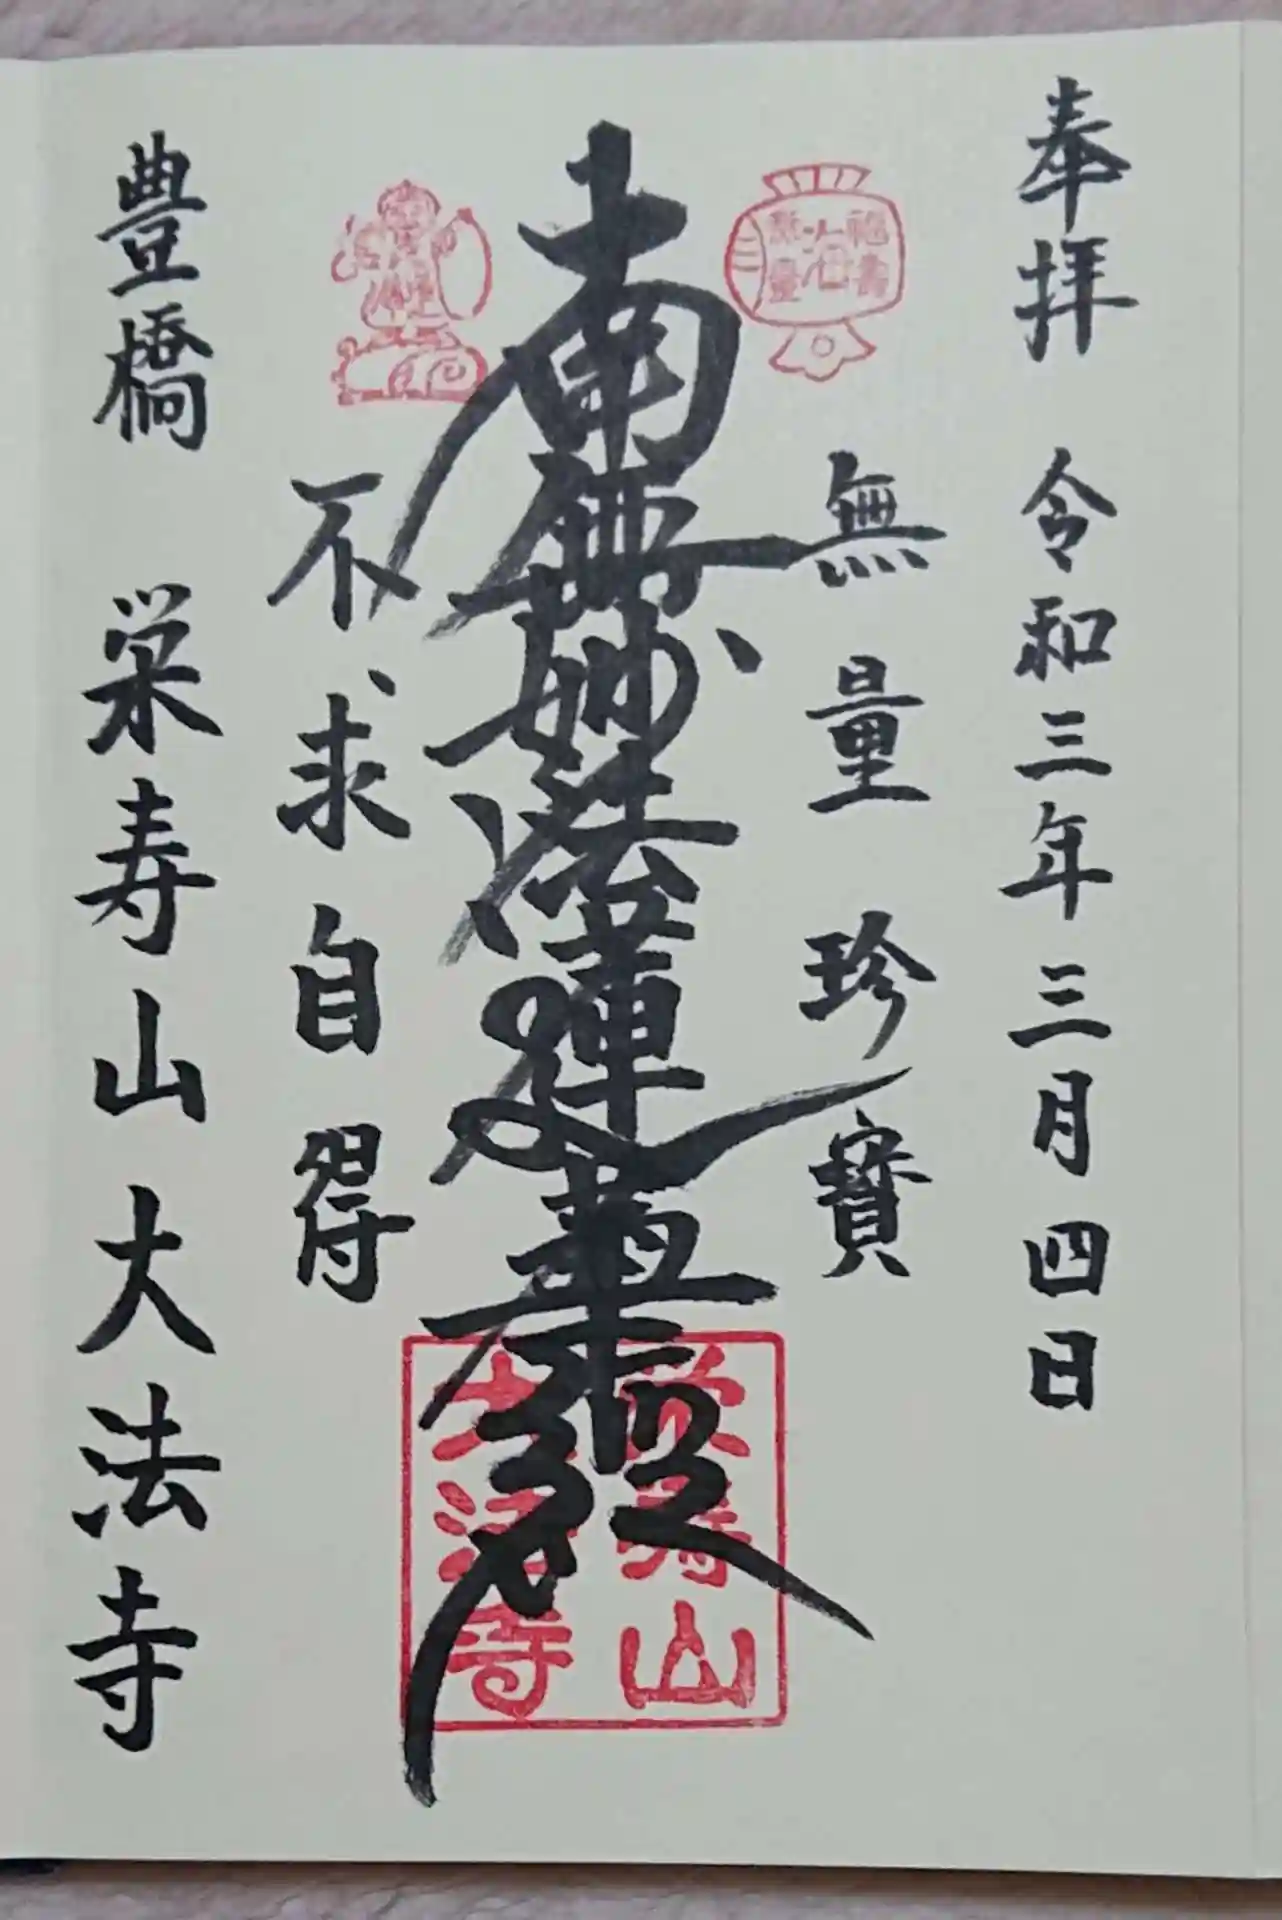 奉拝 令和三年三月四日
無量珍寶
福壽
海
無量
南無妙法蓮華経
不求自得
豊橋 栄寿山大法寺
栄寿山
大法寺